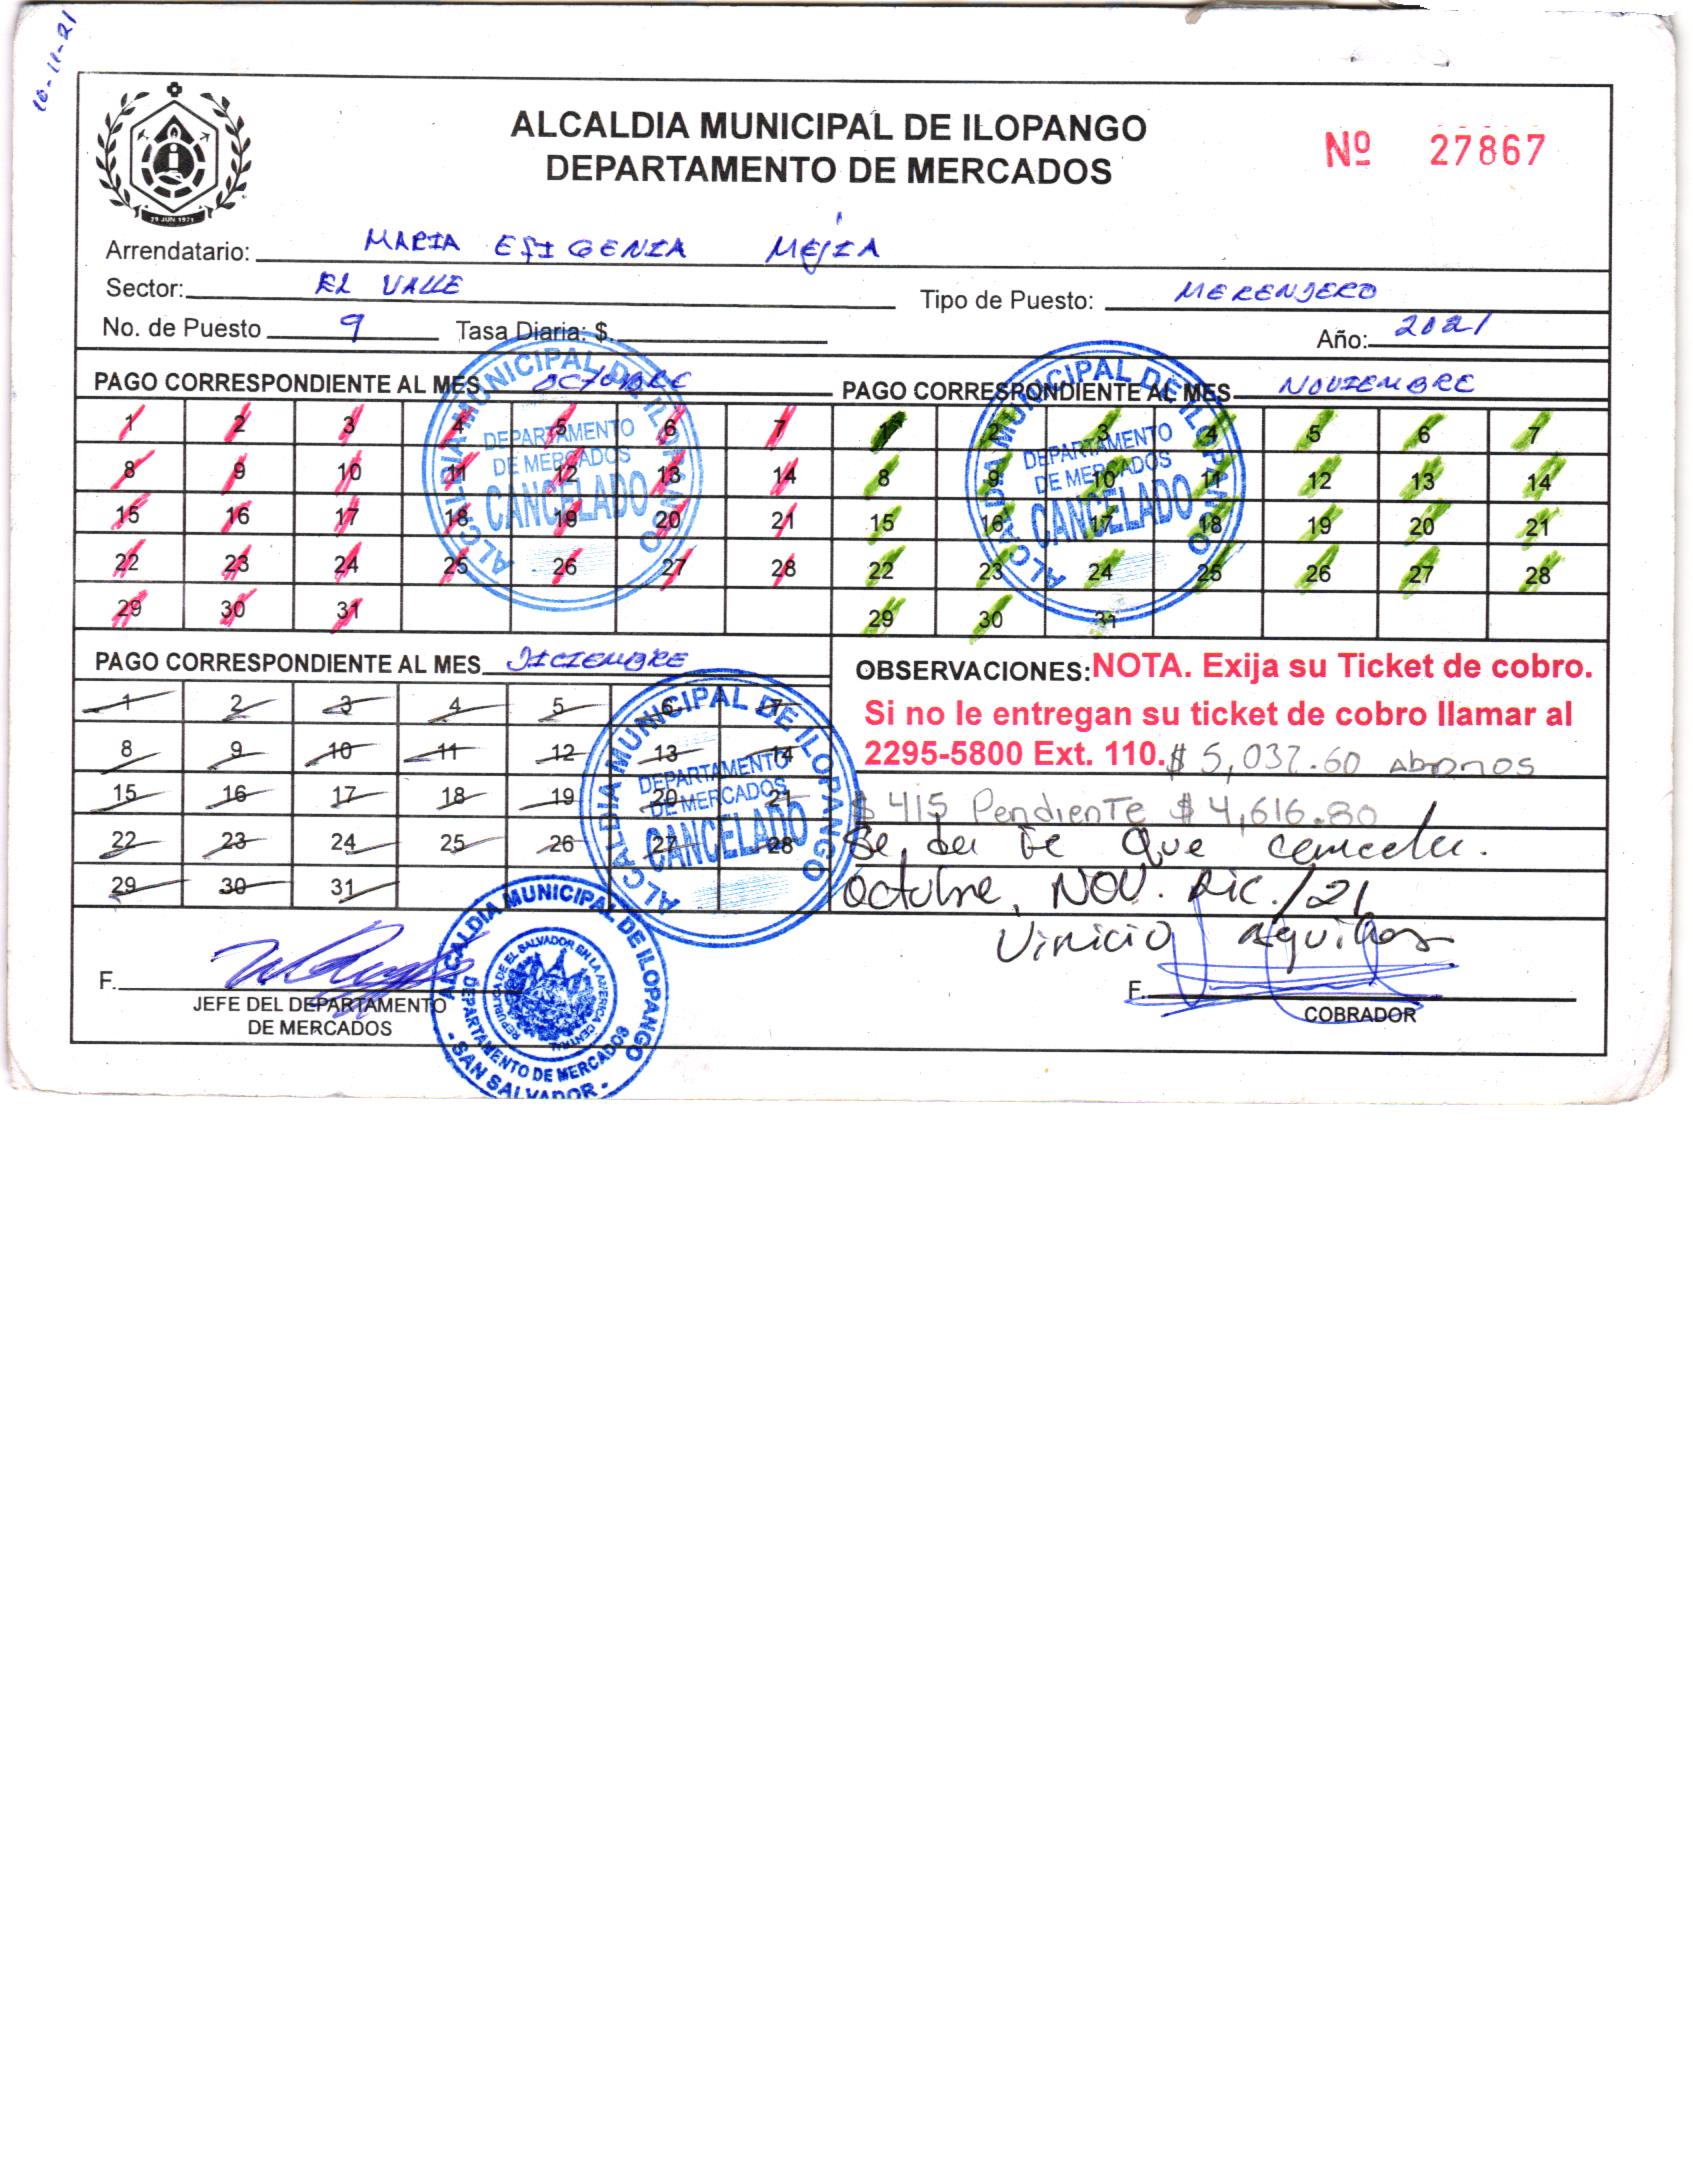 10-11-21
ALCALDIA MUNICIPAL DE ILOPANGO
DEPARTAMENTO DE MERCADOS
Nº 27867
29 JUN 1971
Arrendatario: MARIA EFIGENIA MEJIA
Sector: EL VALLE
Tipo de Puesto: MERENJERO
No. de Puesto 9 Tasa Diaria: $
Año: 2021
PAGO CORRESPONDIENTE AL MES OCTUBRE
1 2 3 4 5 6 7
8 9 10 11 12 13 14
15 16 17 18 19 20 21
22 23 24 25 26 27 28
29 30 31
ALCALDIA MUNICIPAL DE ILOPANGO
DEPARTAMENTO
DE MERCADOS
CANCELADO
PAGO CORRESPONDIENTE AL MES NOVIEMBRE
1 2 3 4 5 6 7
8 9 10 11 12 13 14
15 16 17 18 19 20 21
22 23 24 25 26 27 28
29 30 31
ALCALDIA MUNICIPAL DE ILOPANGO
DEPARTAMENTO
DE MERCADOS
CANCELADO
PAGO CORRESPONDIENTE AL MES DICIEMBRE
1 2 3 4 5 6 7
8 9 10 11 12 13 14
15 16 17 18 19 20 21
22 23 24 25 26 27 28
29 30 31
ALCALDIA MUNICIPAL DE ILOPANGO
DEPARTAMENTO
DE MERCADOS
CANCELADO
OBSERVACIONES: NOTA. Exija su Ticket de cobro.
Si no le entregan su ticket de cobro llamar al
2295-5800 Ext. 110. $ 5,032.60 abonos
$ 415 Pendiente $ 4,616.80
Se da fe que cancela.
Octubre, NOV. Dic./21
Vinicio
F.
JEFE DEL DEPARTAMENTO
DE MERCADOS
ALCALDIA MUNICIPAL DE ILOPANGO
REPUBLICA DE EL SALVADOR EN LA AMERICA CENTRAL
DEPARTAMENTO DE MERCADOS
- SAN SALVADOR -
F.
COBRADOR